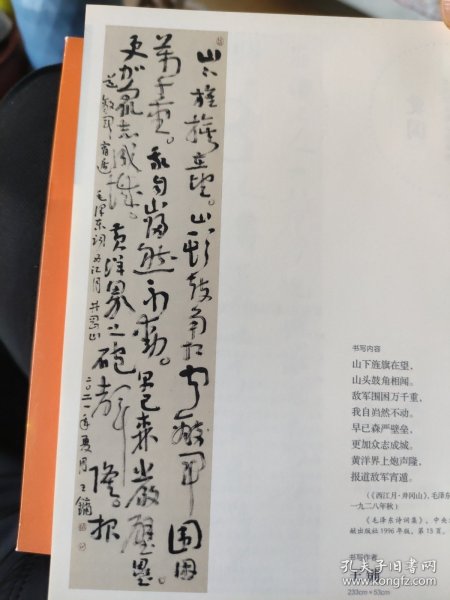 山下旌旗在望。山头鼓角相闻。敌军围困
萬千重。我自岿然不動。早已森严壁垒。
更加众志成城。黄洋界上砲声隆。报
道敌军宵遁。毛泽东词西江月井冈山 二〇二一年夏月王镛
书写内容
山下旌旗在望，
山头鼓角相闻。
敌军围困万千重，
我自岿然不动。
早已森严壁垒，
更加众志成城。
黄洋界上炮声隆，
报道敌军宵遁。
（《西江月·井冈山》，毛泽东
一九二八年秋）
《毛泽东诗词集》，中央
献出版社 1996 年版，第 15 页。
书写作者
王镛
233cm×53cm
孔夫子旧书网